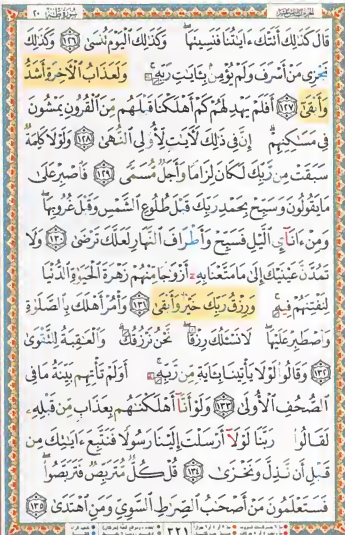 سورة طه ٢٠
قَالَ كَذَٰلِكَ أَتَتْكَ ءَايَٰتُنَا فَنَسِيتَهَا ۖ وَكَذَٰلِكَ ٱلْيَوْمَ تُنسَىٰ ١٢٦ وَكَذَٰلِكَ
نَجْزِى مَنْ أَسْرَفَ وَلَمْ يُؤْمِنۢ بِـَٔايَٰتِ رَبِّهِۦ ۚ وَلَعَذَابُ ٱلْءَاخِرَةِ أَشَدُّ
وَأَبْقَىٰٓ ١٢٧ أَفَلَمْ يَهْدِ لَهُمْ كَمْ أَهْلَكْنَا قَبْلَهُم مِّنَ ٱلْقُرُونِ يَمْشُونَ
فِى مَسَٰكِنِهِمْ ۗ إِنَّ فِى ذَٰلِكَ لَءَايَٰتٍ لِّأُو۟لِى ٱلنُّهَىٰ ١٢٨ وَلَوْلَا كَلِمَةٌ
سَبَقَتْ مِن رَّبِّكَ لَكَانَ لِزَامًا وَأَجَلٌ مُّسَمًّى ١٢٩ فَٱصْبِرْ عَلَىٰ
مَا يَقُولُونَ وَسَبِّحْ بِحَمْدِ رَبِّكَ قَبْلَ طُلُوعِ ٱلشَّمْسِ وَقَبْلَ غُرُوبِهَا ۖ
وَمِنْ ءَانَآئِ ٱلَّيْلِ فَسَبِّحْ وَأَطْرَافَ ٱلنَّهَارِ لَعَلَّكَ تَرْضَىٰ ١٣٠ وَلَا
تَمُدَّنَّ عَيْنَيْكَ إِلَىٰ مَا مَتَّعْنَا بِهِۦٓ أَزْوَٰجًا مِّنْهُمْ زَهْرَةَ ٱلْحَيَوٰةِ ٱلدُّنْيَا
لِنَفْتِنَهُمْ فِيهِ ۚ وَرِزْقُ رَبِّكَ خَيْرٌ وَأَبْقَىٰ ١٣١ وَأْمُرْ أَهْلَكَ بِٱلصَّلَوٰةِ
وَٱصْطَبِرْ عَلَيْهَا ۖ لَا نَسْـَٔلُكَ رِزْقًا ۖ نَّحْنُ نَرْزُقُكَ ۗ وَٱلْعَٰقِبَةُ لِلتَّقْوَىٰ
١٣٢ وَقَالُوا۟ لَوْلَا يَأْتِينَا بِـَٔايَةٍ مِّن رَّبِّهِۦٓ ۚ أَوَلَمْ تَأْتِهِم بَيِّنَةُ مَا فِى
ٱلصُّحُفِ ٱلْأُولَىٰ ١٣٣ وَلَوْ أَنَّآ أَهْلَكْنَٰهُم بِعَذَابٍ مِّن قَبْلِهِۦ
لَقَالُوا۟ رَبَّنَا لَوْلَآ أَرْسَلْتَ إِلَيْنَا رَسُولًا فَنَتَّبِعَ ءَايَٰتِكَ مِن
قَبْلِ أَن نَّذِلَّ وَنَخْزَىٰ ١٣٤ قُلْ كُلٌّ مُّتَرَبِّصٌ فَتَرَبَّصُوا۟ ۖ
فَسَتَعْلَمُونَ مَنْ أَصْحَٰبُ ٱلصِّرَٰطِ ٱلسَّوِىِّ وَمَنِ ٱهْتَدَىٰ ١٣٥
٣٢١